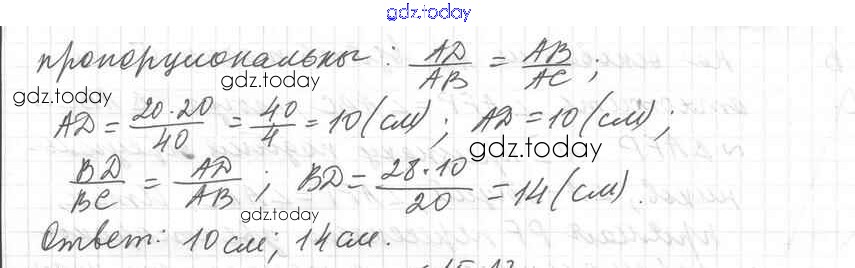 gdz.today
пропорциональны: AD/AB = AB/AC;
gdz.today gdz.today
AD = 20·20/40 = 40/4 = 10 (см); AD = 10 (см);
gdz.today
BD/BC = AD/AB; BD = 28·10/20 = 14 (см).
gdz.today
Ответ: 10 см; 14 см.